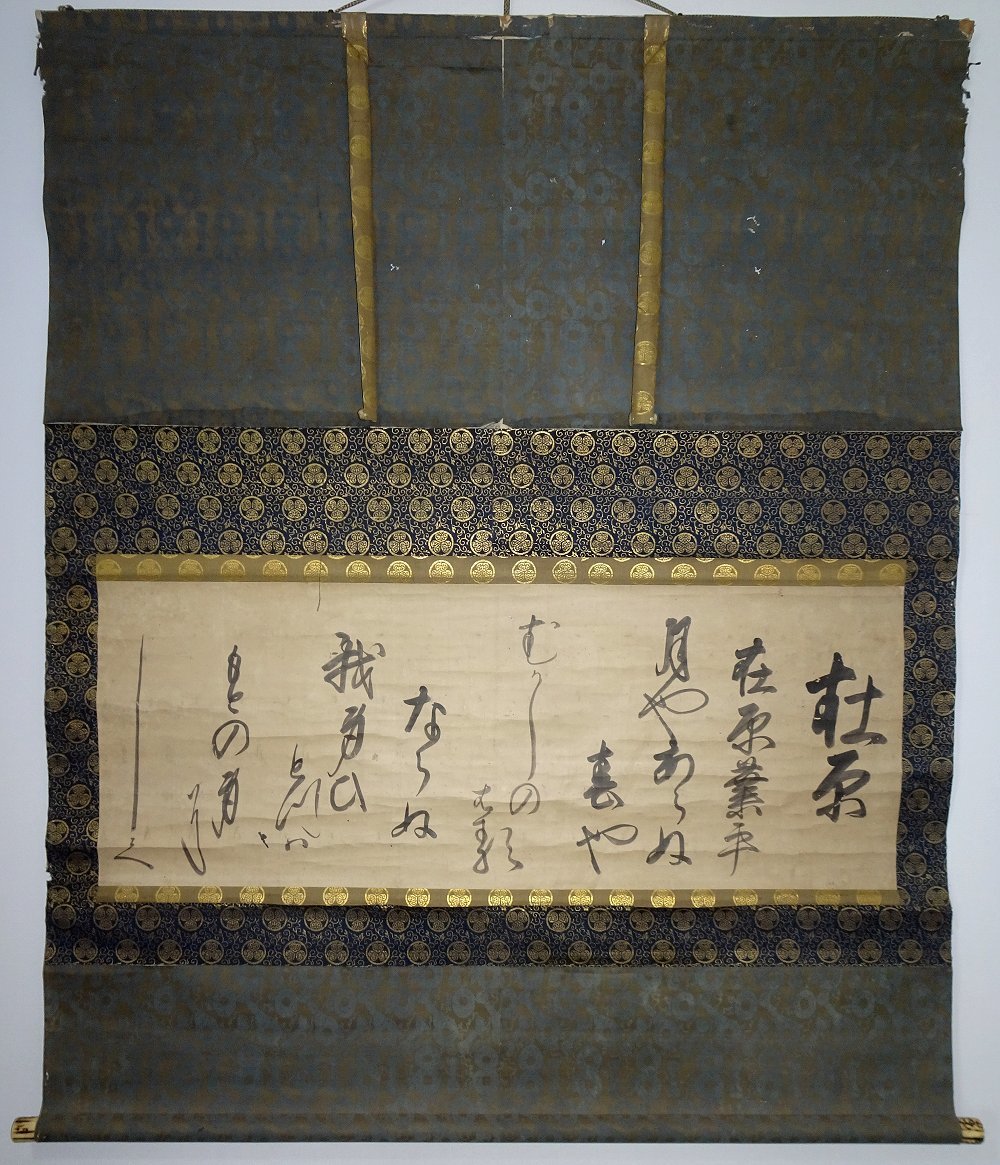 在原業平
月やあらぬ
春や
むかしの
者類
ならぬ
我身ひ
とつハ
もとの身
にして